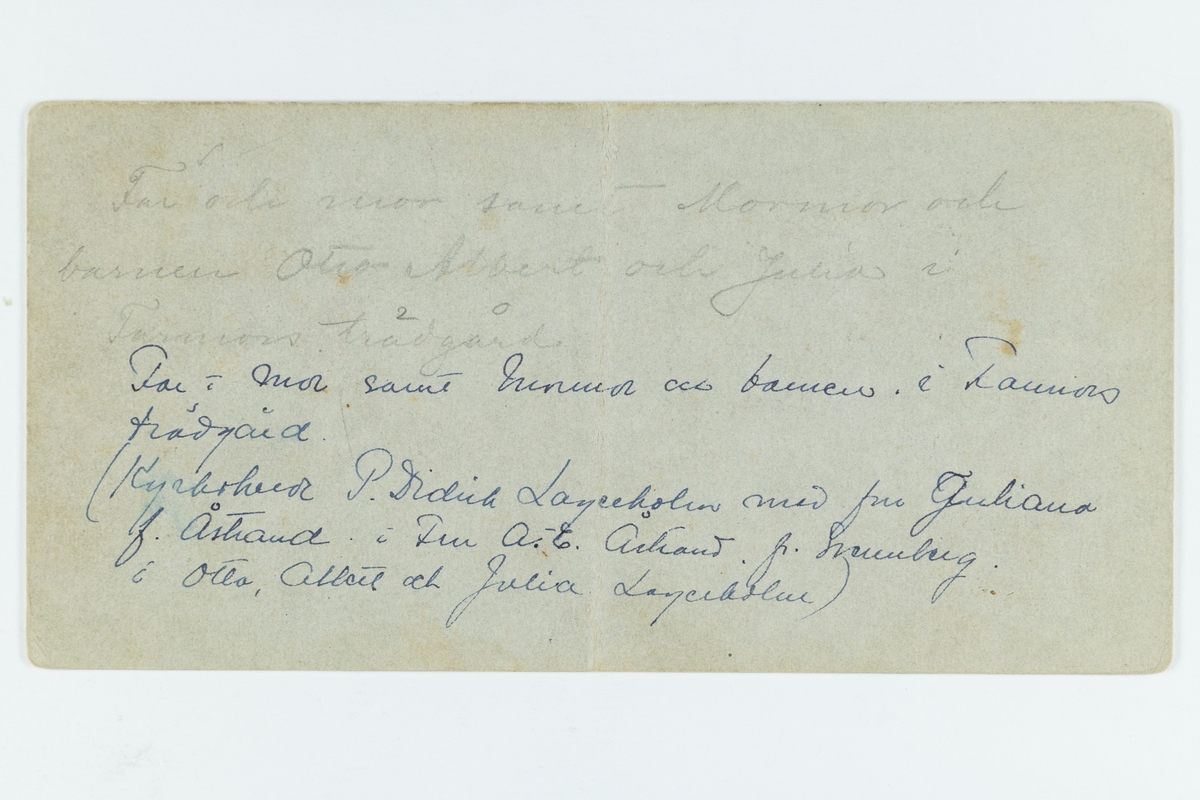 Far och mor samt Mormor och
barnen Otto Albert och Julia i
Farmors trädgård
Far i mor samt Mormor och barnen. i Farmors
trädgård.
(Kyrkoherde P. Didrik Lagerholm med fru Juliana
f. Åstrand. i Fru A. E. Åstrand. f.
i Otto, Albert och Julia Lagerholm)